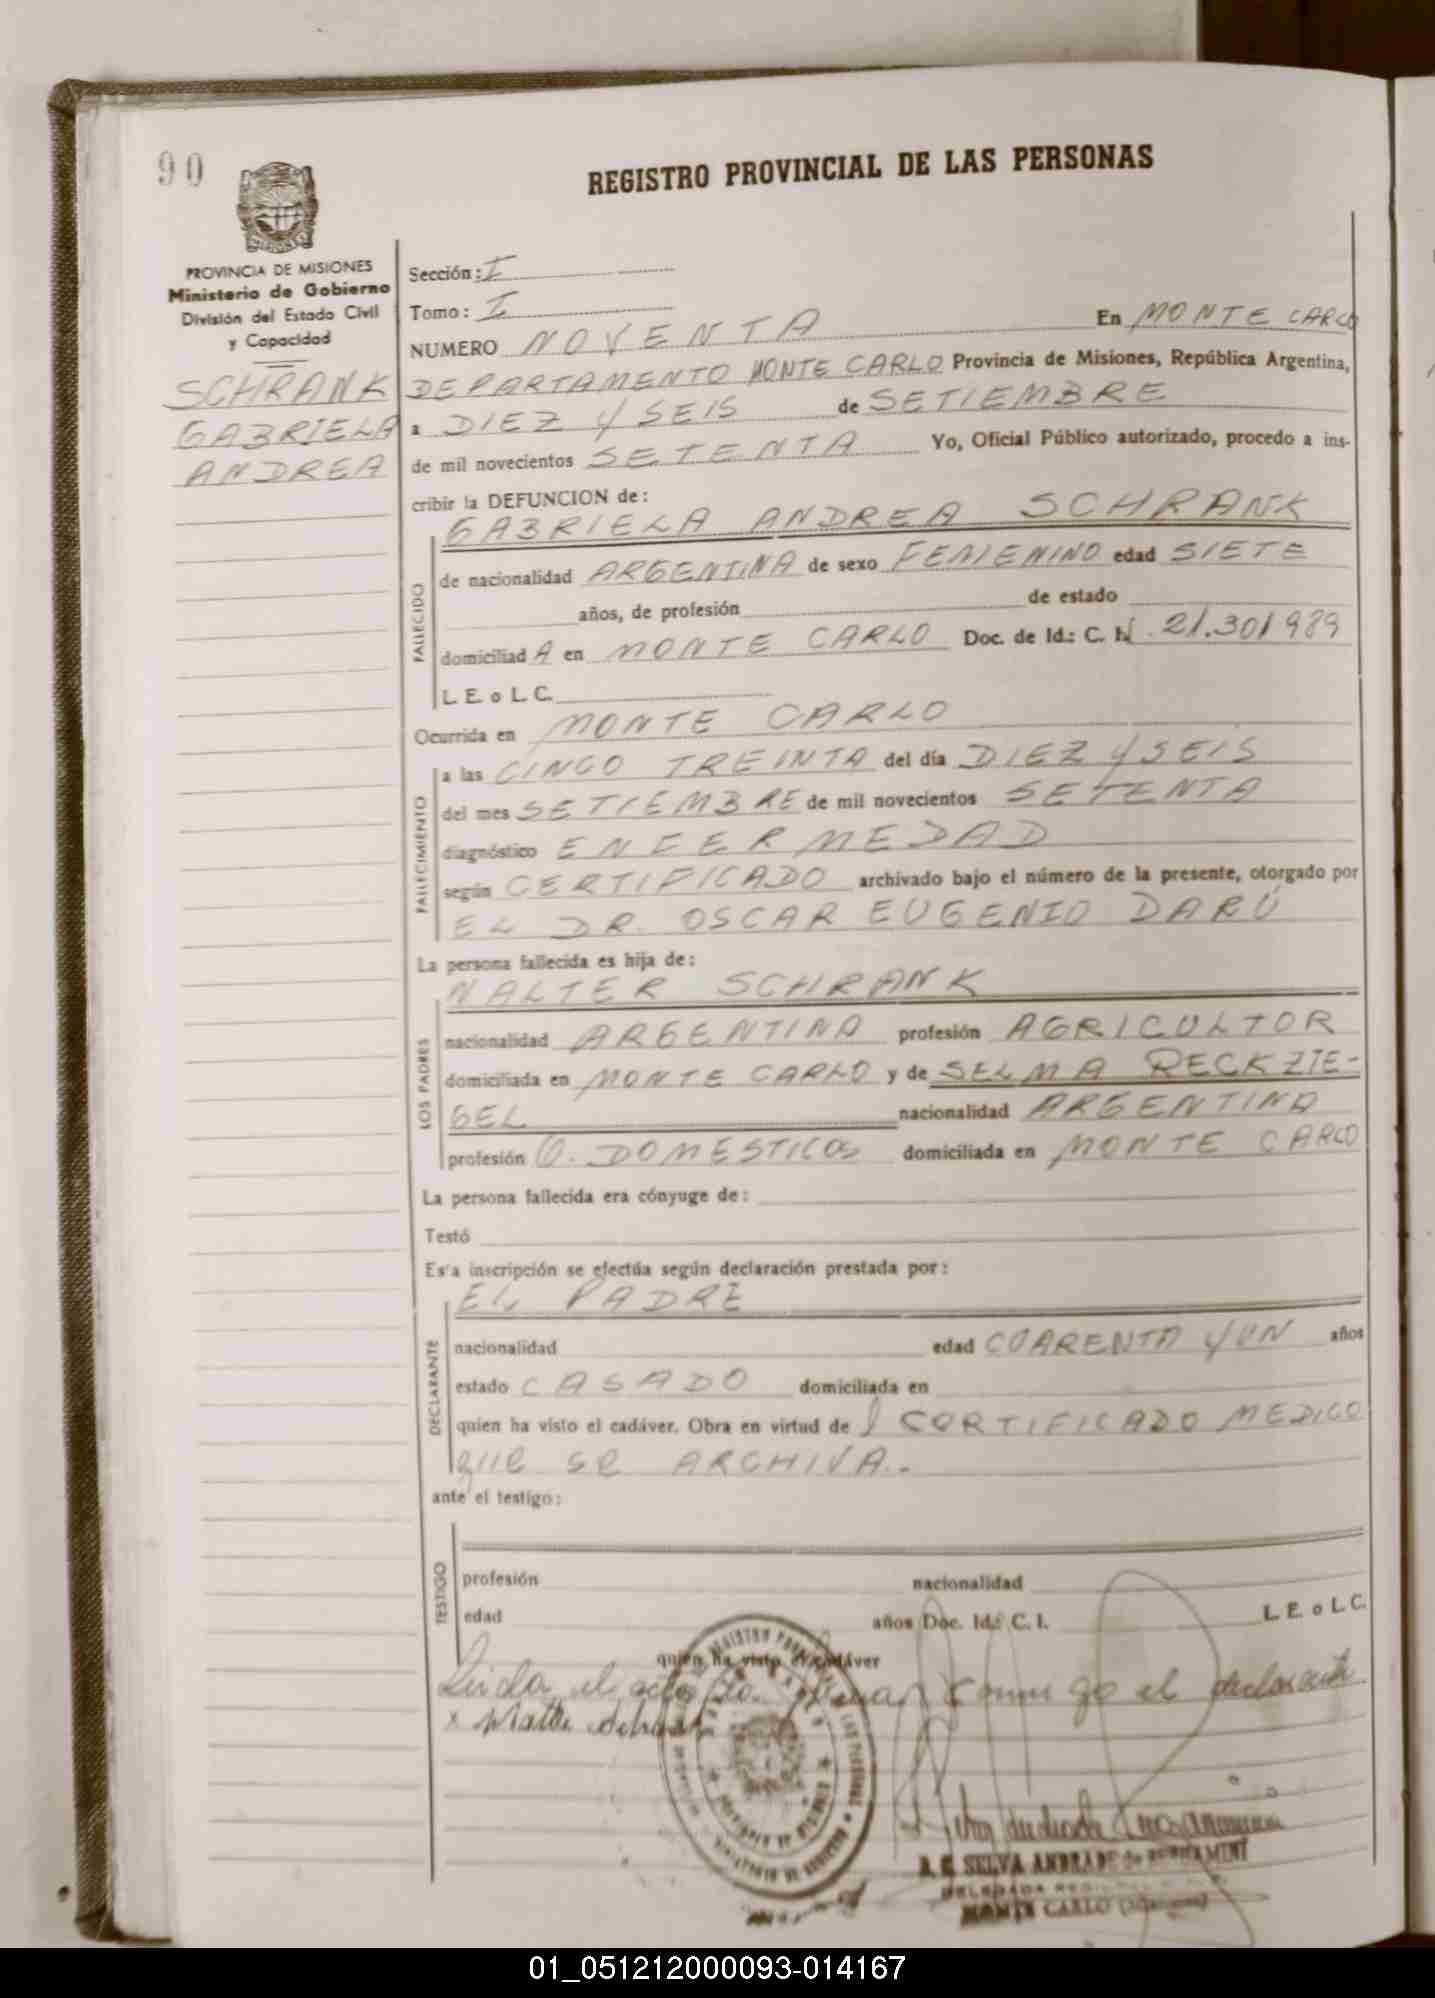 90
REGISTRO PROVINCIAL DE LAS PERSONAS
PROVINCIA DE MISIONES
Ministerio de Gobierno
División del Estado Civil
y Capacidad
SCHRANK
GABRIELA
ANDREA
Sección: I
Tomo: I
NUMERO NOVENTA En MONTE CARLO
DEPARTAMENTO MONTE CARLO Provincia de Misiones, República Argentina,
a DIEZ Y SEIS de SETIEMBRE
de mil novecientos SETENTA Yo, Oficial Público autorizado, procedo a ins-
cribir la DEFUNCION de:
GABRIELA ANDREA SCHRANK
FALLECIDO
de nacionalidad ARGENTINA de sexo FEMENINO edad SIETE
años, de profesión de estado
domiciliad A en MONTE CARLO Doc. de Id.: C. I. 21.301989
L. E. o L. C.
Ocurrida en MONTE CARLO
FALLECIMIENTO
a las CINCO TREINTA del día DIEZ Y SEIS
del mes SETIEMBRE de mil novecientos SETENTA
diagnóstico ENFERMEDAD
según CERTIFICADO archivado bajo el número de la presente, otorgado por
EL DR. OSCAR EUGENIO DARÚ
La persona fallecida es hija de:
WALTER SCHRANK
LOS PADRES
nacionalidad ARGENTINA profesión AGRICULTOR
domiciliada en MONTE CARLO y de SELMA RECKZIE-
GEL nacionalidad ARGENTINA
profesión Q. DOMESTICOS domiciliada en MONTE CARLO
La persona fallecida era cónyuge de:
Testó
Esta inscripción se efectúa según declaración prestada por:
EL PADRE
DECLARANTE
nacionalidad edad CUARENTA Y UN años
estado CASADO domiciliada en
quien ha visto el cadáver. Obra en virtud de 1 CERTIFICADO MEDICO
que se ARCHIVA.-
ante el testigo:
TESTIGO
profesión nacionalidad
edad años Doc. Id.: C. I. L. E. o L. C.
quien ha visto el cadáver
Leída el acta la firman conmigo el declarante
x Walter Schrank
R. E. SELVA ANDRADE de
DELEGADA
MONTE CARLO (Misiones)
01_051212000093-014167